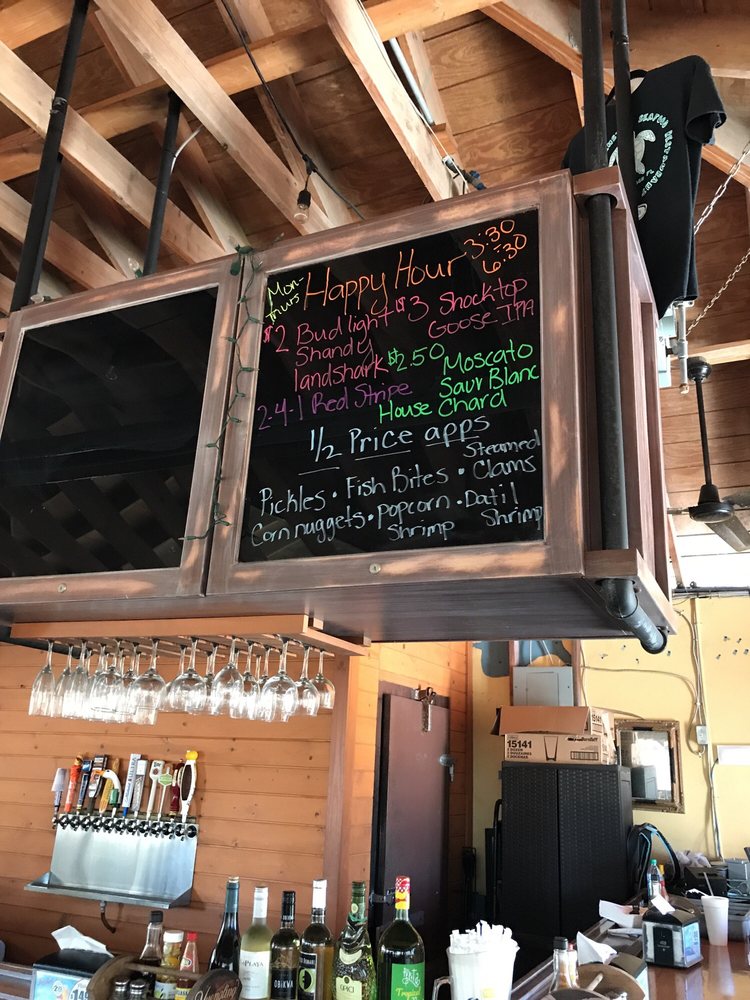 Mon-
Thurs
Happy Hour 3:30
6:30
$2 Bud light $3 Shocktop
Shandy Goose IPA
landshark $2.50 Moscato
Sauv Blanc
2-4-1 Red Stripe House Chard
1/2 Price apps
Pickles • Fish Bites • Steamed
Clams
Corn nuggets • popcorn • Datil
Shrimp Shrimp
15141
15141
PLAYA
OBIKWA